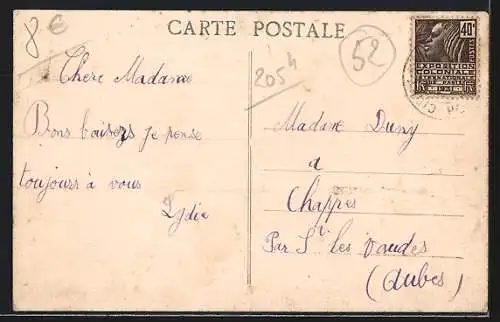 CARTE POSTALE
8€
2054
52
40c
POSTES
EXPOSITION
COLONIALE
INTERNATIONALE
DE PARIS
1931
Chere Madame
Bons baisers je pense
toujours à vous
Lydie
Madame
a
Chappes
Par St les Vaudes
(Aube)